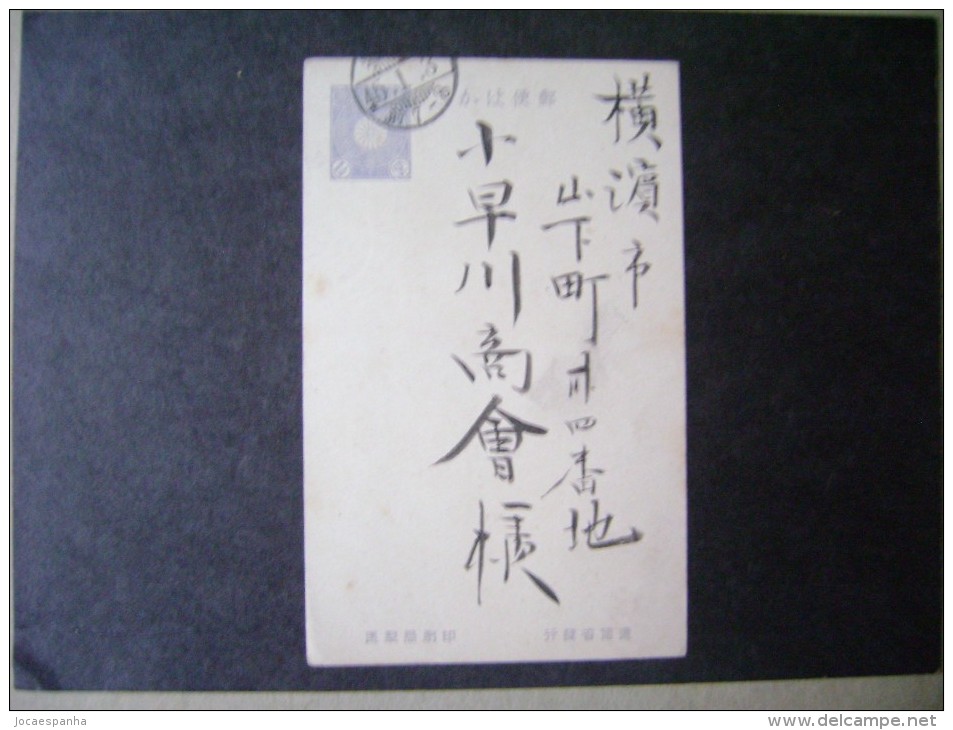 郵便はかき
横濱市
山下町卅四番地
小早川商會樣
逓信省發行
印刷局製造
Jocaespanha
www.delcampe.net